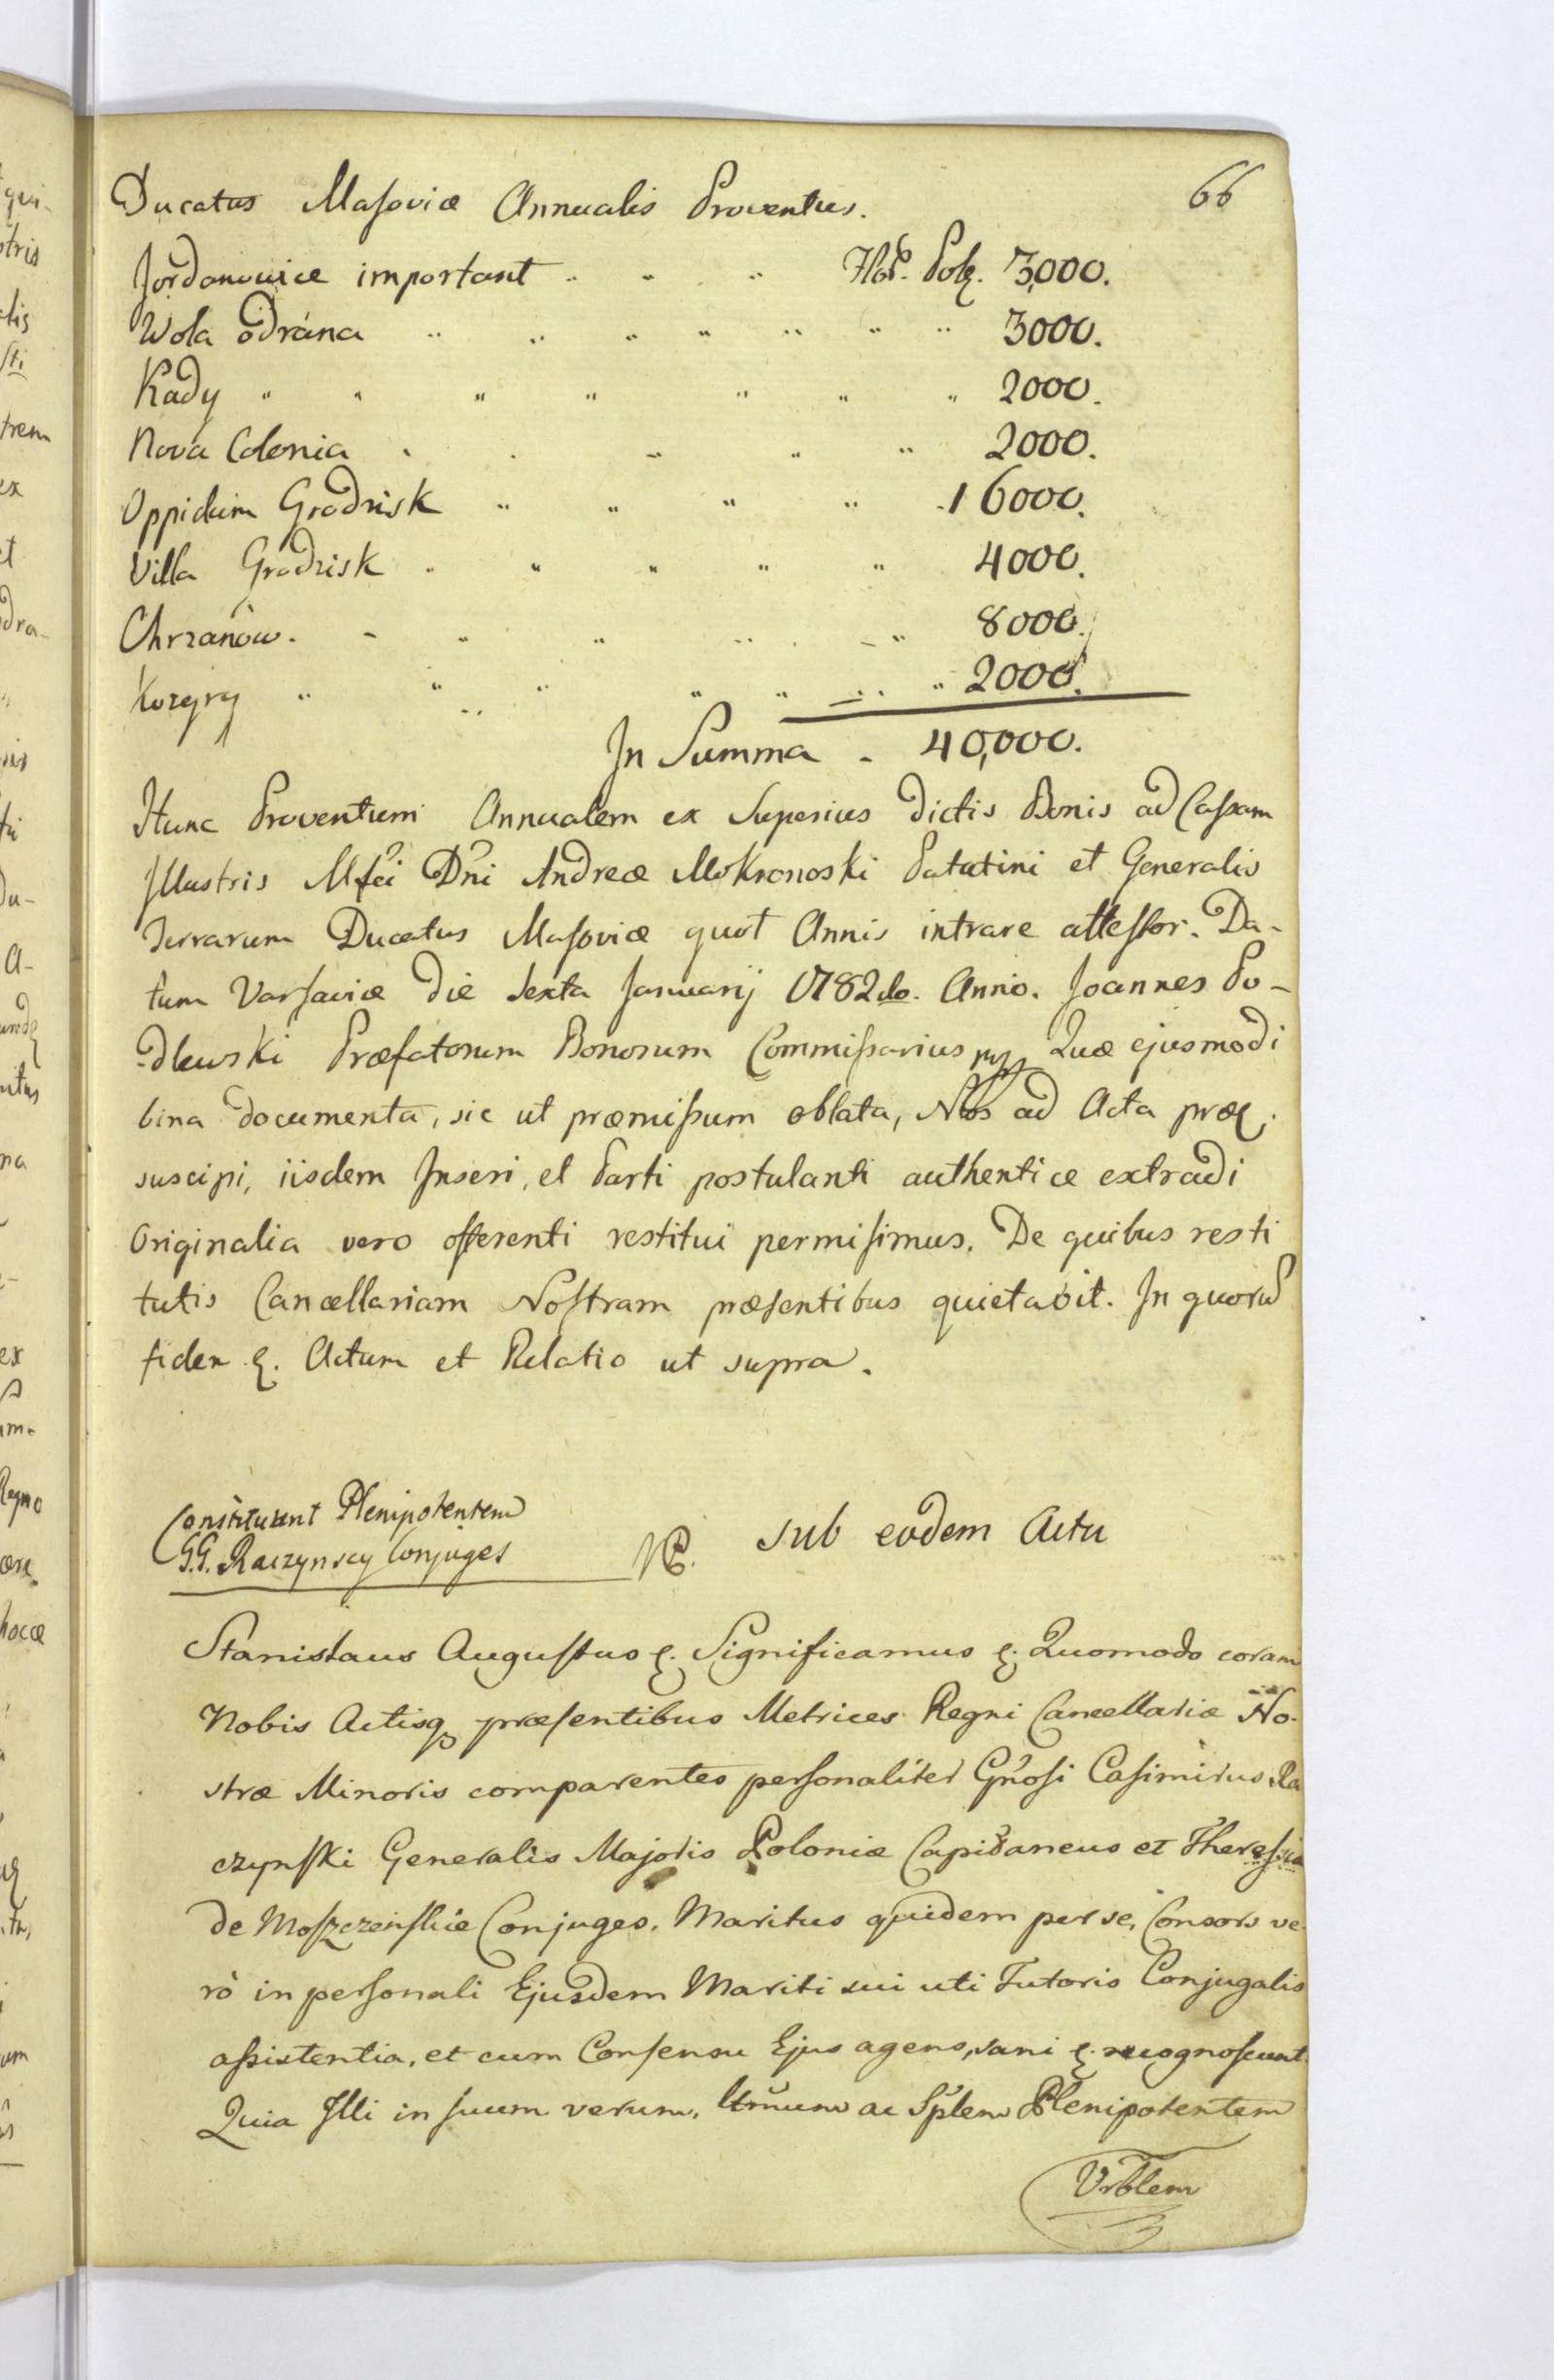 66
Ducatus Masoviæ Annualis Proventus.
Jordanowice important Flor. Pol. 3,000.
Wola odrána 3000.
Kady 2000.
Nova Colonia 2000.
Oppidum Grodzisk 16000.
Villa Grodzisk 4000.
Chrzanów. 8000.
Kozery 2000.
In Summa - 40,000.
Hunc Proventum Annualem ex Superius dictis Bonis ad Cassam
Illustris Mfci Dni Andreæ Mokronoski Palatini et Generalis
Terrarum Ducatus Masoviæ quot Annis intrare attestor. Da-
tum Varsaviæ die sexta Januarij 1782do. Anno. Joannes Po-
dlewski Præfatorum Bonorum Commissarius mpp Quæ ejusmodi
bina documenta, sic ut præmissum oblata, Nos ad Acta præ.
suscipi, iisdem Inseri, et Parti postulanti authentice extradi
Originalia vero offerenti restitui permisimus. De quibus resti
tutis Cancellariam Nostram præsentibus quietavit. In quorū
fidem &. Actum et Relatio ut supra.
Constituunt Plenipotentem
G.G. Raczynscy Conjuges
Sub eodem Actu
Stanislaus Augustus &. Significamus &. Quomodo coram
Nobis Actisq præsentibus Metrices Regni Cancellariæ No-
stræ Minoris comparentes personaliter Gnosi Casimirus Ra
czynski Generalis Majoris Poloniæ Capitaneus et Theresia
de Moszczenskie Conjuges. Maritus quidem per se, Consors ve
rò in personali Ejusdem Mariti sui uti Tutoris Conjugalis
assistentia, et cum Consensu Ejus agens, sani &. recognoscunt
Quia Illi in suum verum, ltmum ac Splem Plenipotentem